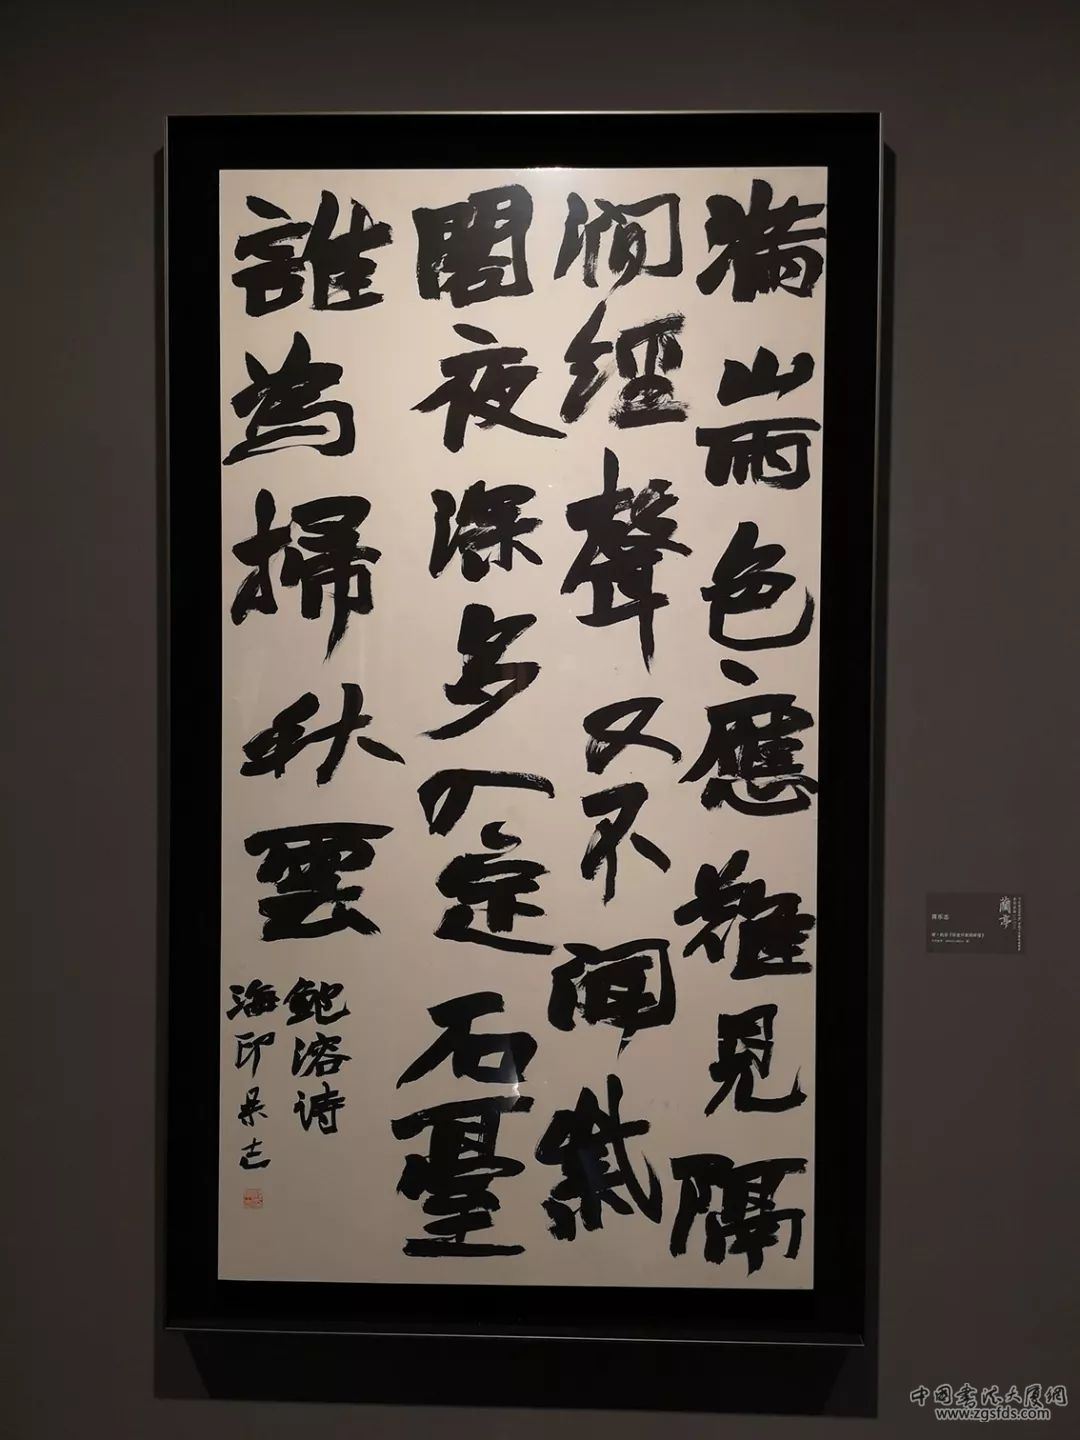 滿山雨色應難見隔
澗經聲又不聞紫
閣夜深多入定石臺
誰為掃秋雲
鮑溶诗
海印
蘭亭
中國書法大厦網
www.zgsfds.com